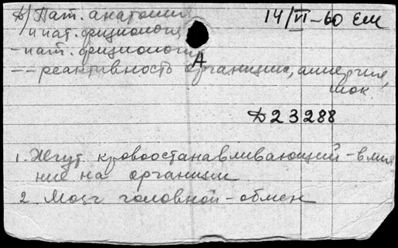 Д) Пат. анатомия 14/VI-60 ЕМ
и пат. физиология
- пат. физиология
А
-- реактивность организма, аллергия,
шок
Д23288
1. Жгут кровоостанавливающий - влия
ние на организм
2. Мозг головной - обмен